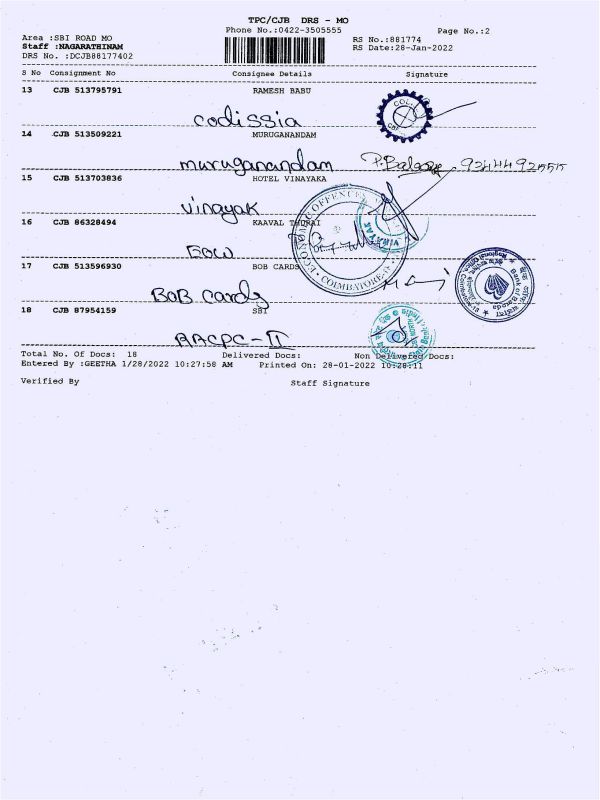 TPC/CJB DRS - MO
Phone No.:0422-3505555
Page No.:2
Area :SBI ROAD MO
RS No.:881774
Staff :NAGARATHINAM
RS Date:28-Jan-2022
DRS No. :DCJB88177402
S No Consignment No Consignee Details Signature
13 CJB 513795791 RAMESH BABU
codissia
14 CJB 513509221 MURUGANANDAM
muruganandam
15 CJB 513703836 HOTEL VINAYAKA
vinayak
16 CJB 86328494 KAAVAL THURAI
EOW
17 CJB 513596930 BOB CARDS
BOB Cards
18 CJB 87954159 SBI
RACPC-II
Total No. Of Docs: 18 Delivered Docs: Non Delivered Docs:
Entered By :GEETHA 1/28/2022 10:27:58 AM Printed On: 28-01-2022 10:28:11
Verified By Staff Signature
COIMBATORE
VINAYAK
Bank of Baroda